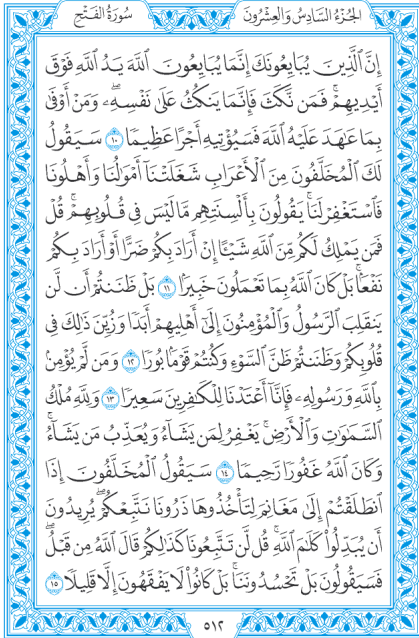 الجُزْءُ السَّادِسُ وَالعِشْرُونَ
سُورَةُ الفَتْحِ
إِنَّ ٱلَّذِينَ يُبَايِعُونَكَ إِنَّمَا يُبَايِعُونَ ٱللَّهَ يَدُ ٱللَّهِ فَوْقَ
أَيْدِيهِمْ ۚ فَمَن نَّكَثَ فَإِنَّمَا يَنكُثُ عَلَىٰ نَفْسِهِۦ ۖ وَمَنْ أَوْفَىٰ
بِمَا عَـٰهَدَ عَلَيْهُ ٱللَّهَ فَسَيُؤْتِيهِ أَجْرًا عَظِيمًا ١٠ سَيَقُولُ
لَكَ ٱلْمُخَلَّفُونَ مِنَ ٱلْأَعْرَابِ شَغَلَتْنَآ أَمْوَٰلُنَا وَأَهْلُونَا
فَٱسْتَغْفِرْ لَنَا ۚ يَقُولُونَ بِأَلْسِنَتِهِم مَّا لَيْسَ فِى قُلُوبِهِمْ ۚ قُلْ
فَمَن يَمْلِكُ لَكُم مِّنَ ٱللَّهِ شَيْـًٔا إِنْ أَرَادَ بِكُمْ ضَرًّا أَوْ أَرَادَ بِكُمْ
نَفْعًۢا ۚ بَلْ كَانَ ٱللَّهُ بِمَا تَعْمَلُونَ خَبِيرًۢا ١١ بَلْ ظَنَنتُمْ أَن لَّن
يَنقَلِبَ ٱلرَّسُولُ وَٱلْمُؤْمِنُونَ إِلَىٰٓ أَهْلِيهِمْ أَبَدًا وَزُيِّنَ ذَٰلِكَ فِى
قُلُوبِكُمْ وَظَنَنتُمْ ظَنَّ ٱلسَّوْءِ وَكُنتُمْ قَوْمًۢا بُورًا ١٢ وَمَن لَّمْ يُؤْمِنۢ
بِٱللَّهِ وَرَسُولِهِۦ فَإِنَّآ أَعْتَدْنَا لِلْكَـٰفِرِينَ سَعِيرًا ١٣ وَلِلَّهِ مُلْكُ
ٱلسَّمَـٰوَٰتِ وَٱلْأَرْضِ ۚ يَغْفِرُ لِمَن يَشَآءُ وَيُعَذِّبُ مَن يَشَآءُ ۚ
وَكَانَ ٱللَّهُ غَفُورًا رَّحِيمًا ١٤ سَيَقُولُ ٱلْمُخَلَّفُونَ إِذَا
ٱنطَلَقْتُمْ إِلَىٰ مَغَانِمَ لِتَأْخُذُوهَا ذَرُونَا نَتَّبِعْكُمْ ۖ يُرِيدُونَ
أَن يُبَدِّلُوا۟ كَلَـٰمَ ٱللَّهِ ۚ قُل لَّن تَتَّبِعُونَا كَذَٰلِكُمْ قَالَ ٱللَّهُ مِن قَبْلُ ۖ
فَسَيَقُولُونَ بَلْ تَحْسُدُونَنَا ۚ بَلْ كَانُوا۟ لَا يَفْقَهُونَ إِلَّا قَلِيلًا ١٥
٥١٢